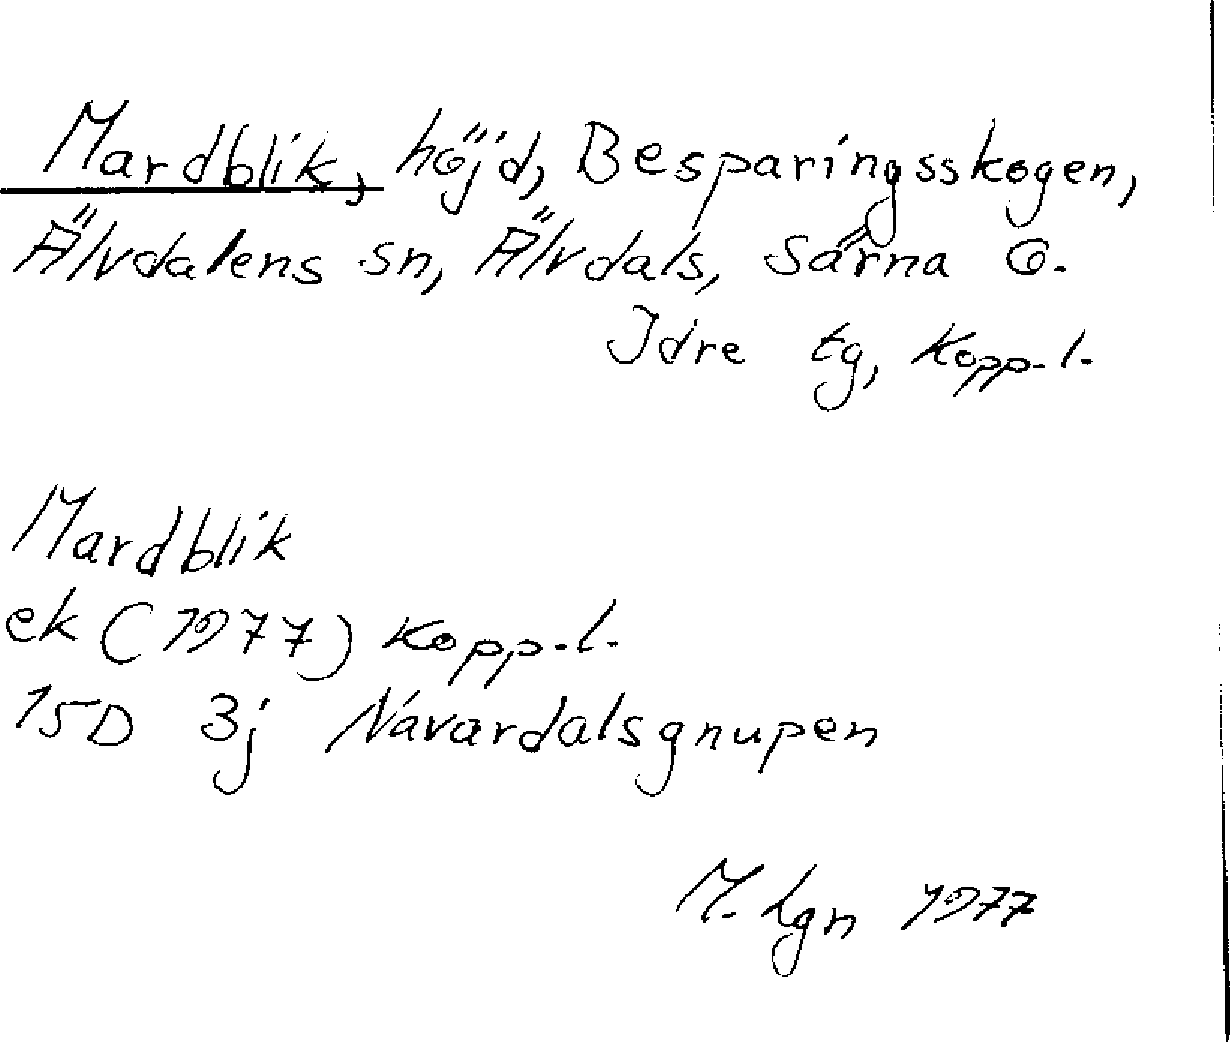 Mardblik, höjd, Besparingsskogen,
Älvdalens sn, Älvdals, Särna o.
Idre tg, Kopp.l.
Mardblik
ek (1977) Kopp.l.
15D 3j Navardalsgnupen
M. Lgn 1977